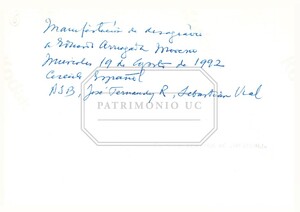 Manifestación de desagravio
a Edmundo Arriagada Moreno
Miércoles 19 de Agosto de 1992
Círculo Español
ASB, José Fernández R, Sebastián Vial
PATRIMONIO UC